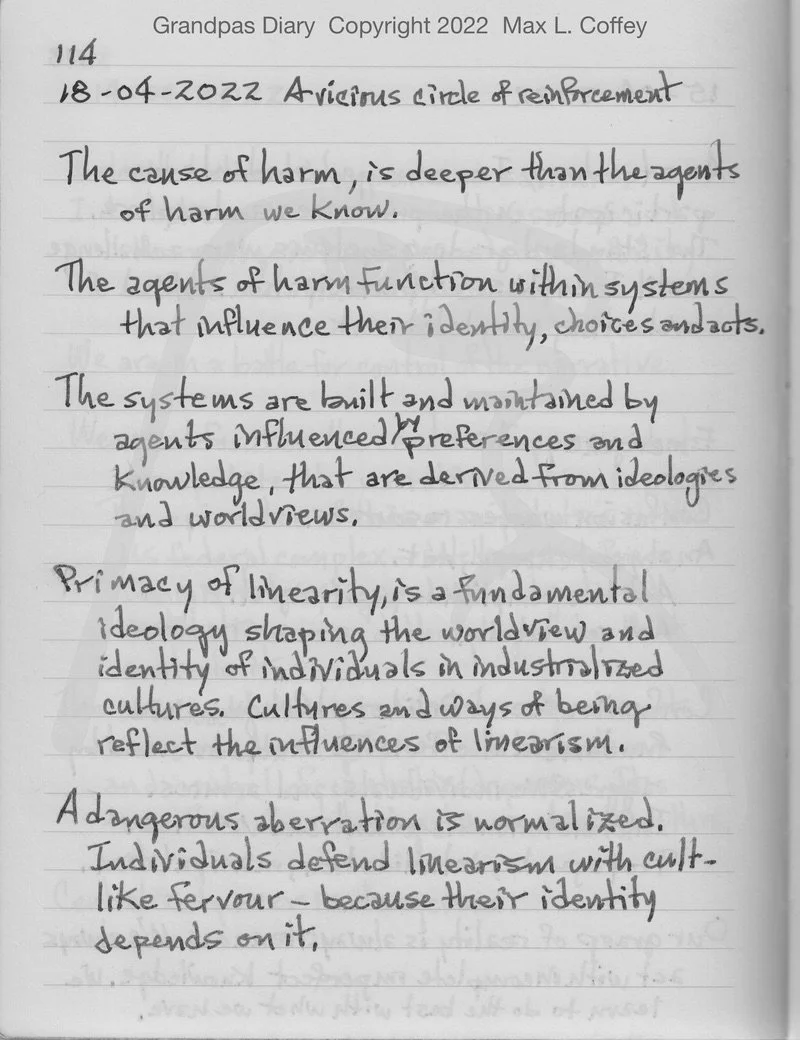 Grandpas Diary Copyright 2022 Max L. Coffey
114
18-04-2022 A vicious circle of reinforcement
The cause of harm, is deeper than the agents
of harm we know.
The agents of harm function within systems
that influence their identity, choices and acts.
The systems are built and maintained by
agents influenced by preferences and
knowledge, that are derived from ideologies
and worldviews.
Primacy of linearity, is a fundamental
ideology shaping the worldview and
identity of individuals in industrialized
cultures. Cultures and ways of being
reflect the influences of linearism.
A dangerous aberration is normalized.
Individuals defend linearism with cult-
like fervour – because their identity
depends on it.